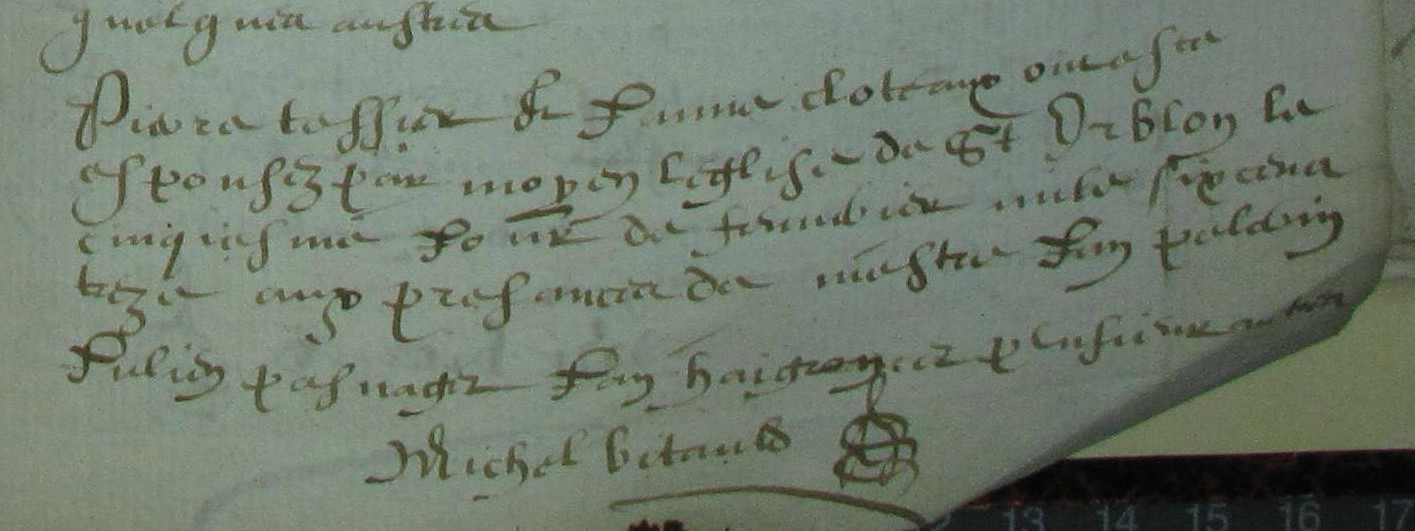 quelques austres
Pierre tessier & Janne cloteaux ont este
espousez par moy en leglise de St Erblon le
cinquiesme Jour de feuvrier mile six cens
treze aux presances de mestre Jan pelerin
Julien pasnager Jan haigron et plusieurs autres
Michel bitauld
13 14 15 16 17